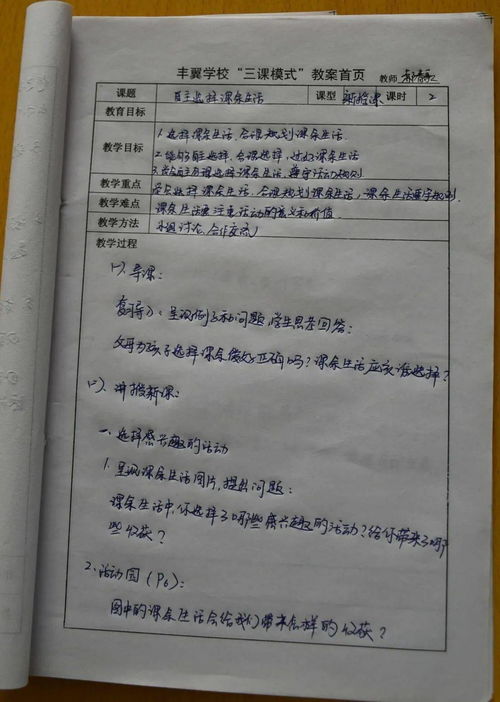 丰翼学校“三课模式”教案首页 教师
课题 自主选择课余生活 课型 新授课 课时 2
教育目标
教学目标 1. 选择课余生活,合理规划课余生活.
2. 能够自主选择,合理选择,过好课余生活
3. 学会自主合理选择课余生活,遵守活动规则
教学重点 学会选择课余生活,合理规划课余生活,课余生活要守规则.
教学难点 课余生活要注意活动的意义和价值.
教学方法 小组讨论,合作交流
教学过程
(一). 导课:
复习导入:呈现例子和问题,学生思考回答:
父母为孩子选择课余做好正确吗?课余生活应该谁选择?
(二). 讲授新课:
一. 选择感兴趣的活动
1. 呈现课余生活图片,提出问题:
课余生活中,你选择了哪些感兴趣的活动?给你带来了哪
些收获?
2. 活动园(P6):
图中的课余生活会给我们带来怎样的收获?